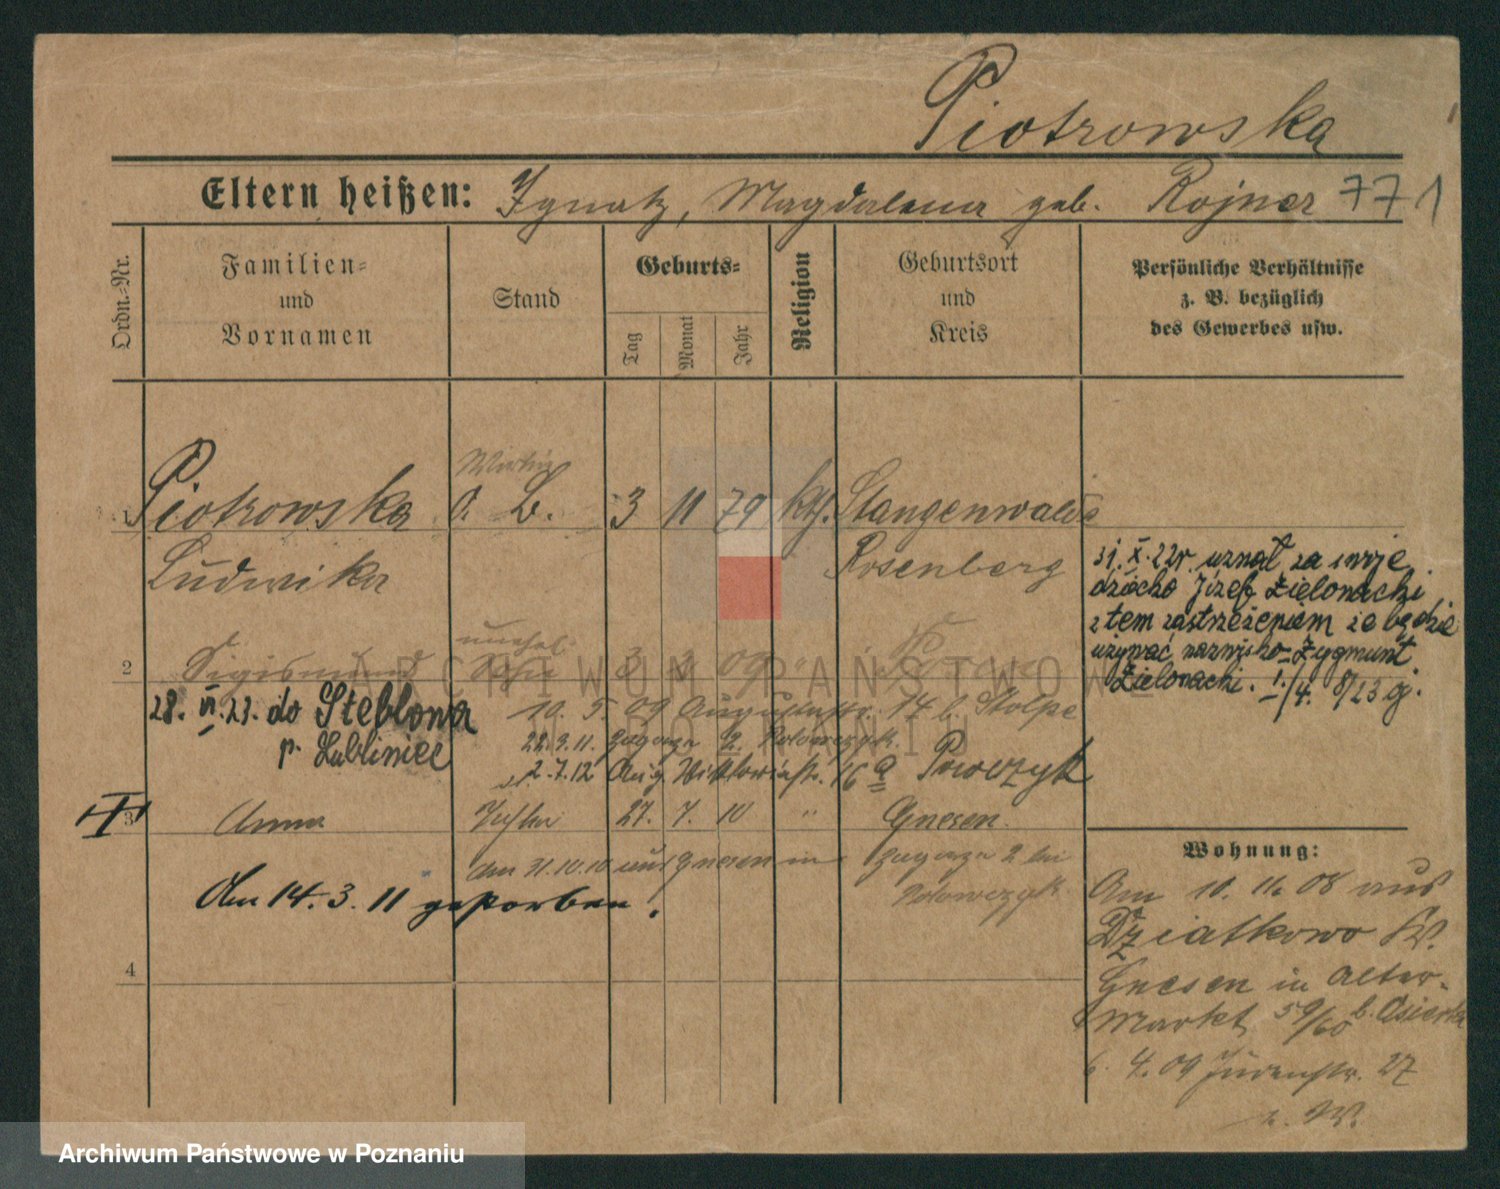 Piotrowska
Eltern heißen: Ignatz, Magdalena geb. Rojner 771
Ordn.-Nr.
Familien-
und
Vornamen
Stand
Geburts-
Tag
Monat
Jahr
Religion
Geburtsort
und
Kreis
Persönliche Verhältnisse
z. B. bezüglich
des Gewerbes usw.
1 Piotrowska o. B. 3 11 79 kth. Stangenwalde
Ludwika Rosenberg
31. X. 22r. uznał za swoje
dziecko Józef Zielonacki
z tem zastrzeżeniem że będzie
używać nazwisko - Zygmunt
Zielonacki. 1./4. 8/23 g.
2 Sigismund unehel. 3 09 "
28. VI. 23. do Steblowa
p. Lubliniec
10. 5. 09 Augustastr. 14 b. Stolpe
22.3.11. Zagorze 2.
2.7.12 Aug. Viktoriastr. 16a Pawczyk
3 Anna Tochter 27. 7. 10 " Gnesen.
Am 31.10.10 aus Gnesen in Zagorze 2 bei
Am 14. 3. 11 gestorben.
4
Wohnung:
Am 10. 11. 08 aus
Dziatkowo Kr.
Gnesen in Alter-
Markt 59/60 b.
6. 4. 09 Judenstr. 27
ARCHIWUM PAŃSTWOWE
W POZNANIU
Archiwum Państwowe w Poznaniu